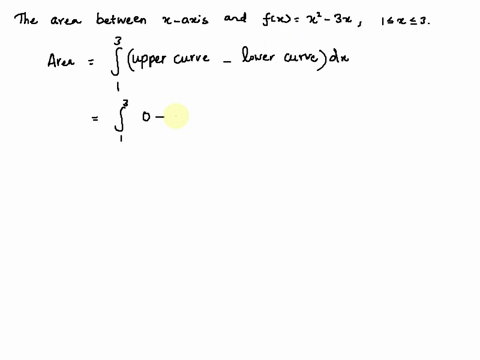 The area between x-axis and f(x) = x² - 3x, 1 ≤ x ≤ 3.
Area = ∫₁³ (upper curve - lower curve) dx
= ∫₁³ 0 -